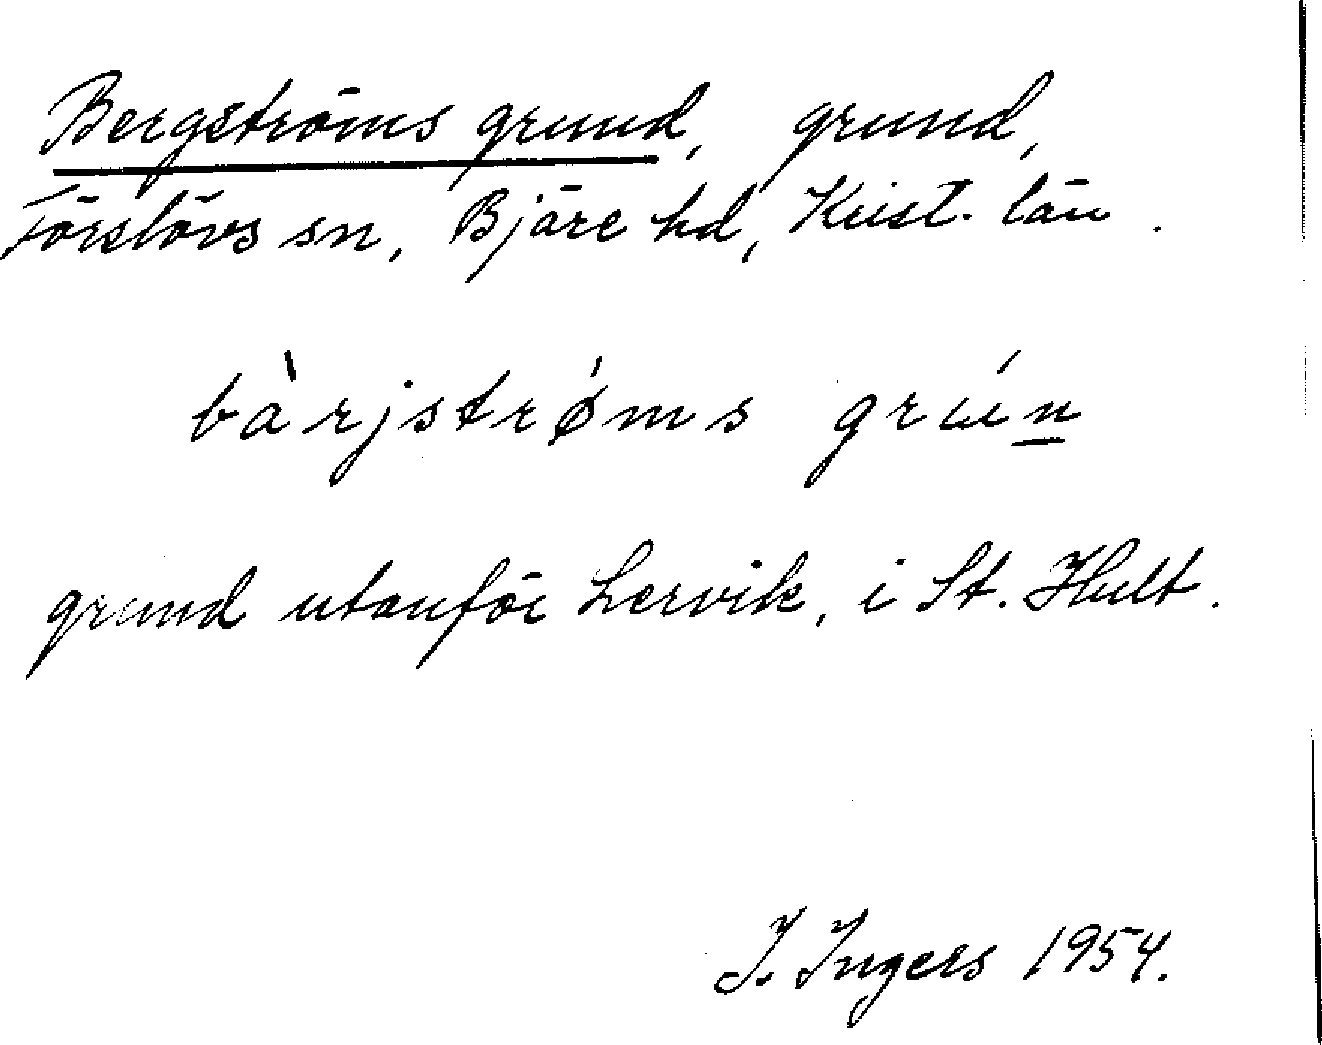 Bergströms grund, grund,
Förslövs sn, Bjäre hd, Krist. län.
bàrjstrǿms grún̲
grund utanför Lervik, i St. Hult.
I. Ingers 1954.